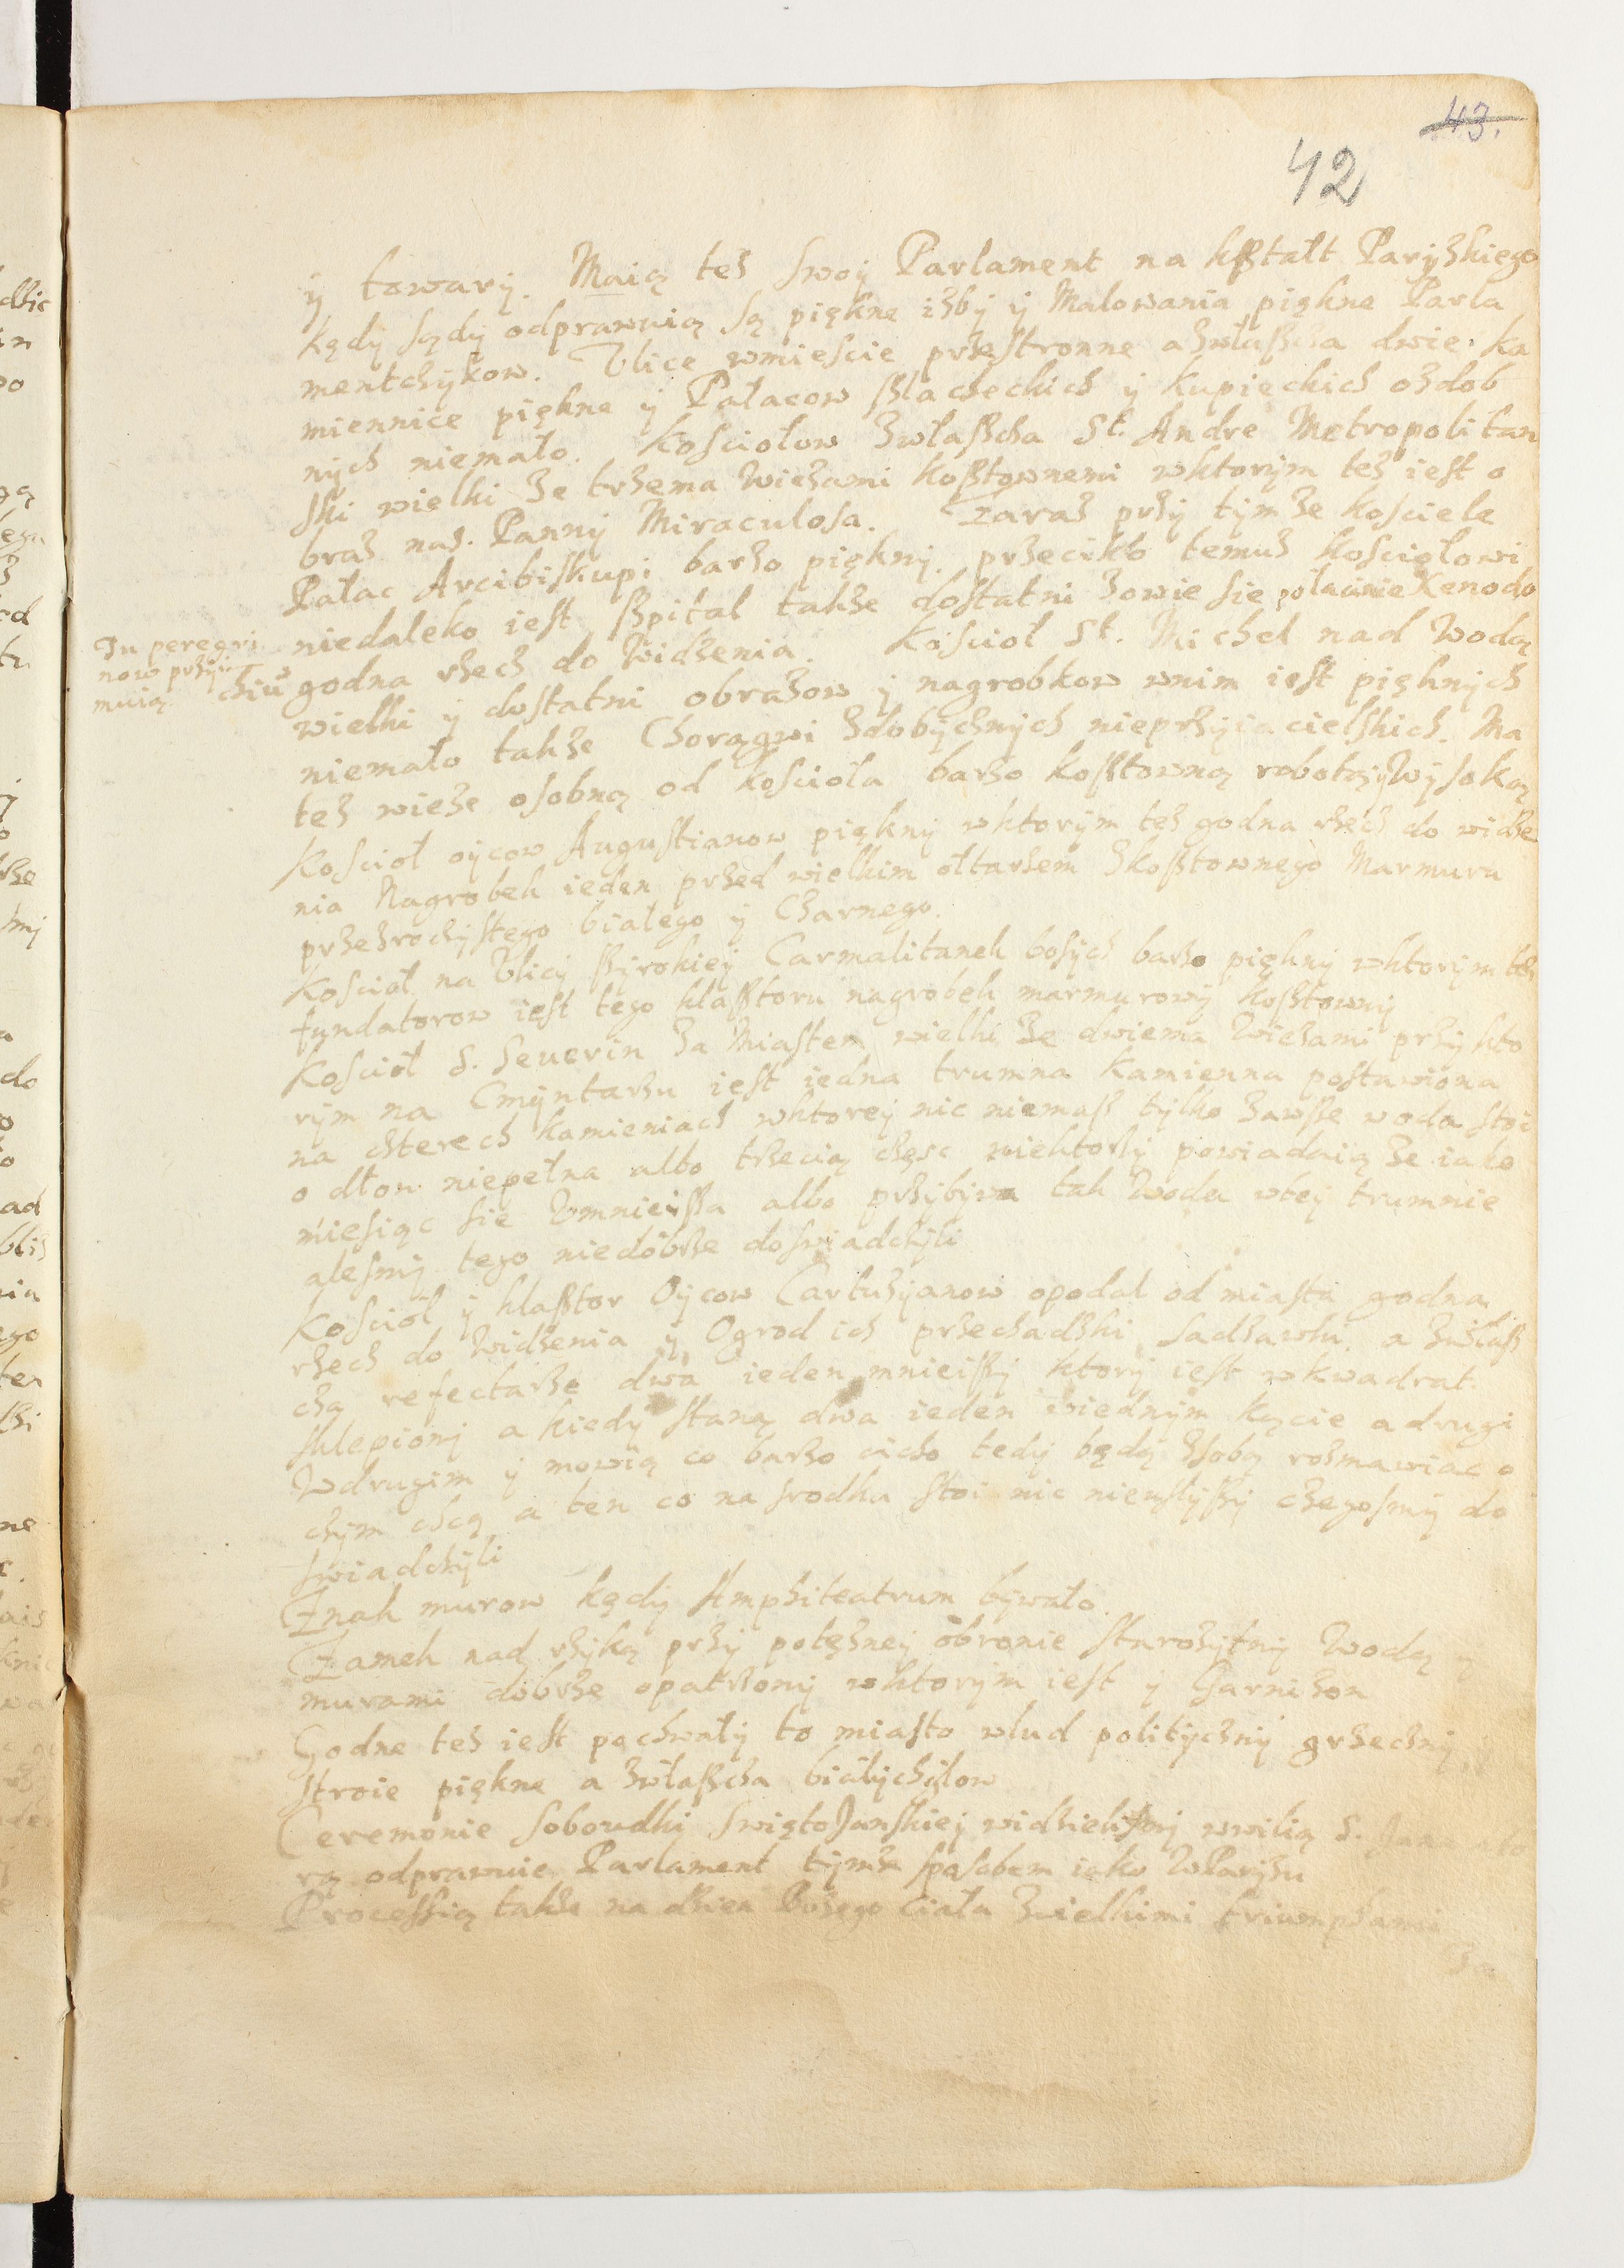 43.
42
ÿ towarÿ. Maią tes swoÿ Parlament na kßtałt Parÿskiego
kędÿ sądÿ odprawuią są piękne isbÿ ÿ Malowania piękne Parla
mentchÿkow. Vlice wmiescie przestronne azwłaßcza dwie. Ka
miennice piękne ÿ Pałacow ßlacheckich ÿ kupieckich ozdob
nÿch niemało. Kosciołow zwłaßcza St. Andre Metropolitan
ski wielki ze trzema Wiezami koßtownemi wktorÿm tez iest o
braz nas. Pannÿ Miraculosa. Zaraz przÿ tÿmze kosciele
Pałac Arcibiskupi barzo pięknÿ. przeciko temuz kosciołowi
niedaleko iest ßpital takze dostatni zowie sie połacinie Xenodo
Tu peregri
now przÿim
muią
chiū godna rzech do Widzenia. Koscioł St. Michel nad Wodą
wielki ÿ dostatni obrazow ÿ nagrobkow wnim iest pięknÿch
niemało takze Chorągwi zdobÿcznÿch nieprzÿiacielskich. Ma
tez wieze osobną od kościoła barzo koßtowną robotą ÿ Wÿsoką
Koscioł oÿcow Augustianow pięknÿ wktorÿm tez godna rzech do widze
nia Nagrobek ieden przed wielkim ołtarzem zkoßtownego Marmuru
przezrochÿstego białego ÿ Charnego.
Koscioł na Vlicÿ ßÿrokieÿ Carmalitanek bosÿch barzo pięknÿ wktorÿm tez
fundatorow iest tego klaßtoru nagrobek marmurowÿ koßtownÿ
Koscioł S. Seuerin za Miastem wielki ze dwiema Wiezami przÿ kto
rÿm na Cmÿntarzu iest iedna trumna kamienna postawiona
na chterech kamieniach wktoreÿ nic niemaß tÿlko zawße woda stoi
o dłon niepełna albo trzecią chęsc niektorzÿ powiadaią ze iako
miesiąc sie Vmnieißa albo przÿbÿwa tak Woda wteÿ trumnie
alesmÿ tego niedobrze doswiadchÿli
Koscioł ÿ klaßtor Oÿcow Cartuzÿanow opodal od miasta godna
rzech do Widzenia ÿ Ogrod ich przechadzki sadzawki. a zwłaß
cha refectarze dwa ieden mnieißÿ ktorÿ iest wkwadrat
sklepionÿ a kiedÿ staną dwa ieden wiednÿm kącie a drugi
Wdrugim ÿ mowią co barzo cicho tedÿ będą zsobą rozmawiac o
chÿm chcą a ten co na srodku stoi nic nieusłÿßÿ chegosmÿ do
swiadchÿli
Znak murow kędÿ Amphiteatrum bÿwało.
Zamek nad rzÿką przÿ potęzneÿ obronie starozÿtnÿ Wodą ÿ
murami dobrze opatrzonÿ wktorÿm iest ÿ Garnizon
Godne tez iest pochwałÿ to miasto wlud politÿchnÿ grzechnÿ
stroie piękne a zwłaßcha białÿchgłow
Ceremonie soboudki swiętoJanskieÿ widzielismÿ wwilią S.
rą odprawuie Parlament tÿmze sposobem iako WParÿzu
Processią takze na dzien Bozego Ciała zwielkimi triumphami
Za